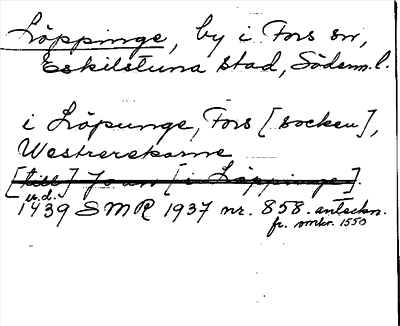 Löppinge, by i Fors sn,
Eskilstuna stad, Söderm. l.
i Löpunge, Fors [socken],
Westrerekarne
[till] Joan [i Löppinge].
u.d.
1439 SMR 1937 nr. 858. anteckn.
fr. omkr. 1550